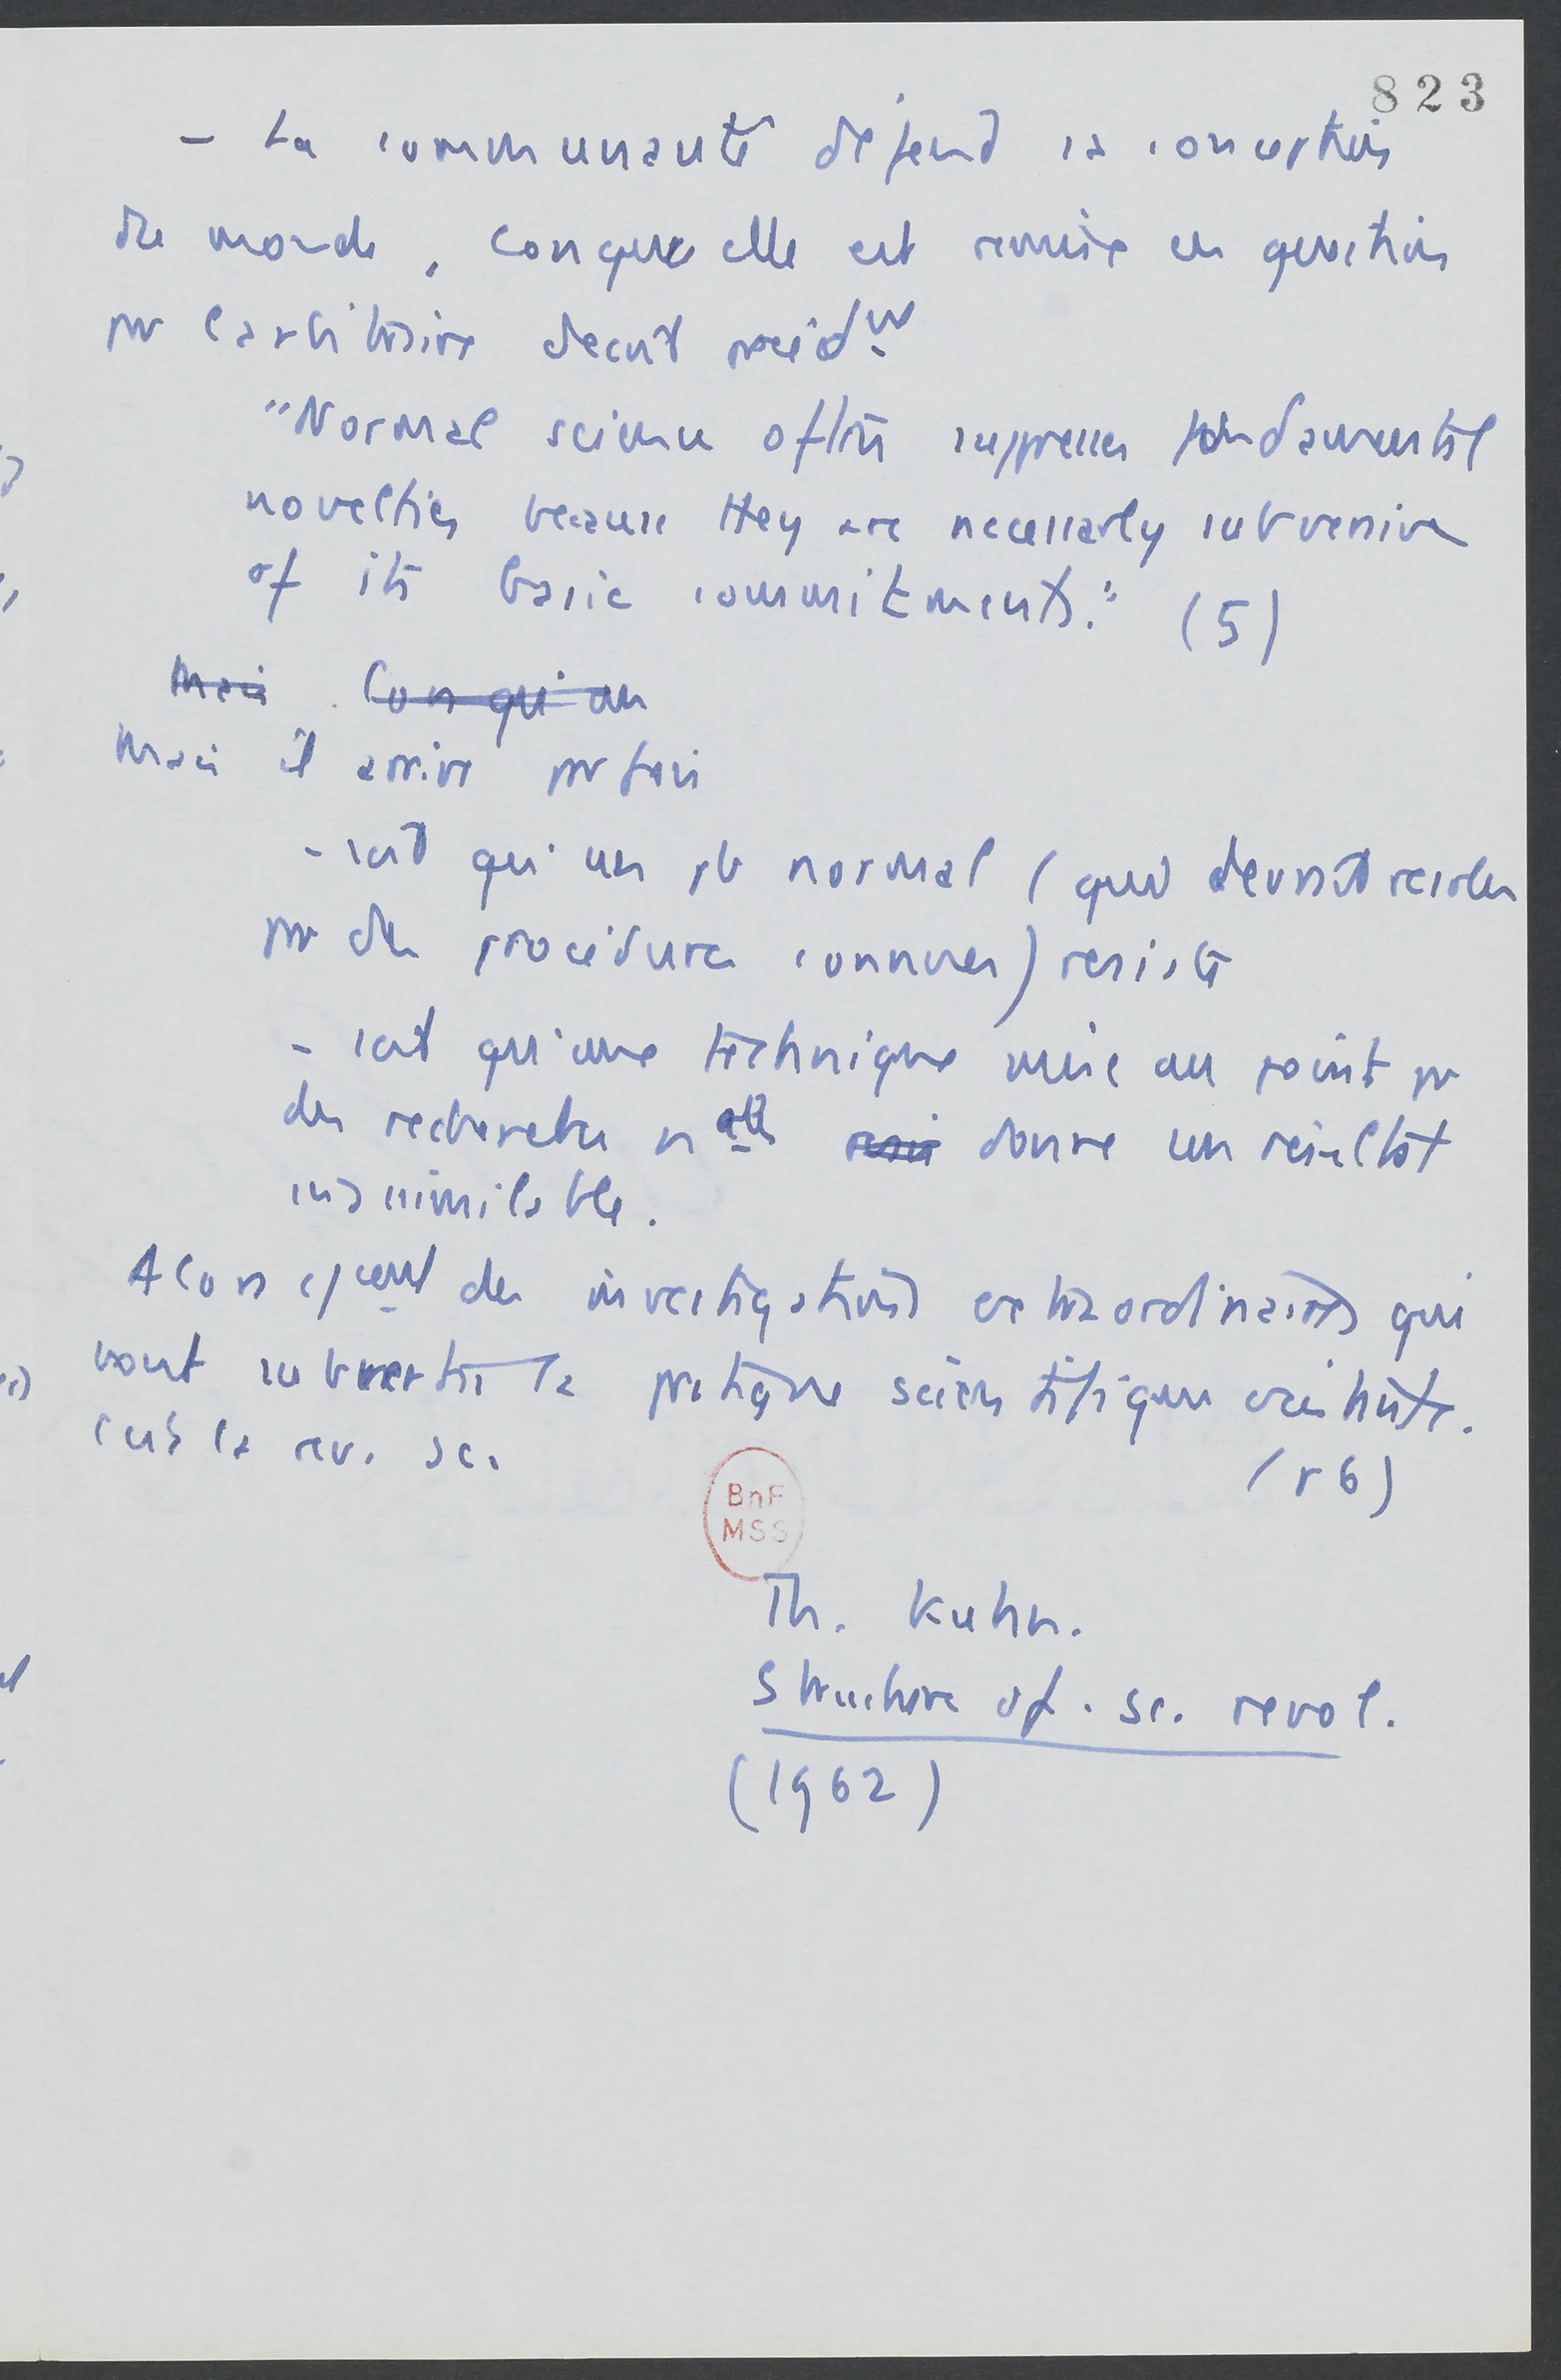 823
- La communauté défend sa conception
du monde, lorsque elle est remise en question
pr l'arbitraire dont procéd
"Normal science often suppresses fundamental
novelties because they are necessarly subversive
of its basic commitments." (5)
Mais Lorsqu'au
Mais il arrive parfois
- soit qu'un pb normal (qui devrait résolu
pr des procédures connues) résiste
- soit qu'une technique mise au point pr
des recherches nelles donne un résultat
inassimilable.
Alors des investigations extraordinaires qui
vont subvertir la pratique scientifique existante.
c'est la rev. sc.
(p 6)
BnF
MSS
Th. Kuhn.
Structure of. sc. revol.
(1962)